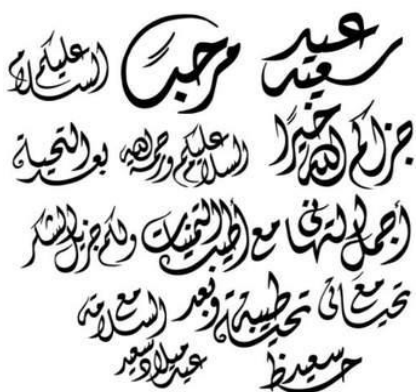 عيد سعيد
مرحبا
السلام عليكم
جزاكم الله خيرا
السلام عليكم ورحمة الله
بعد التحية
أجمل التهاني مع أطيب التمنيات ولكم جزيل الشكر
مع تحياتي
تحية طيبة وبعد
مع السلامة
حظ سعيد
عيد ميلاد سعيد